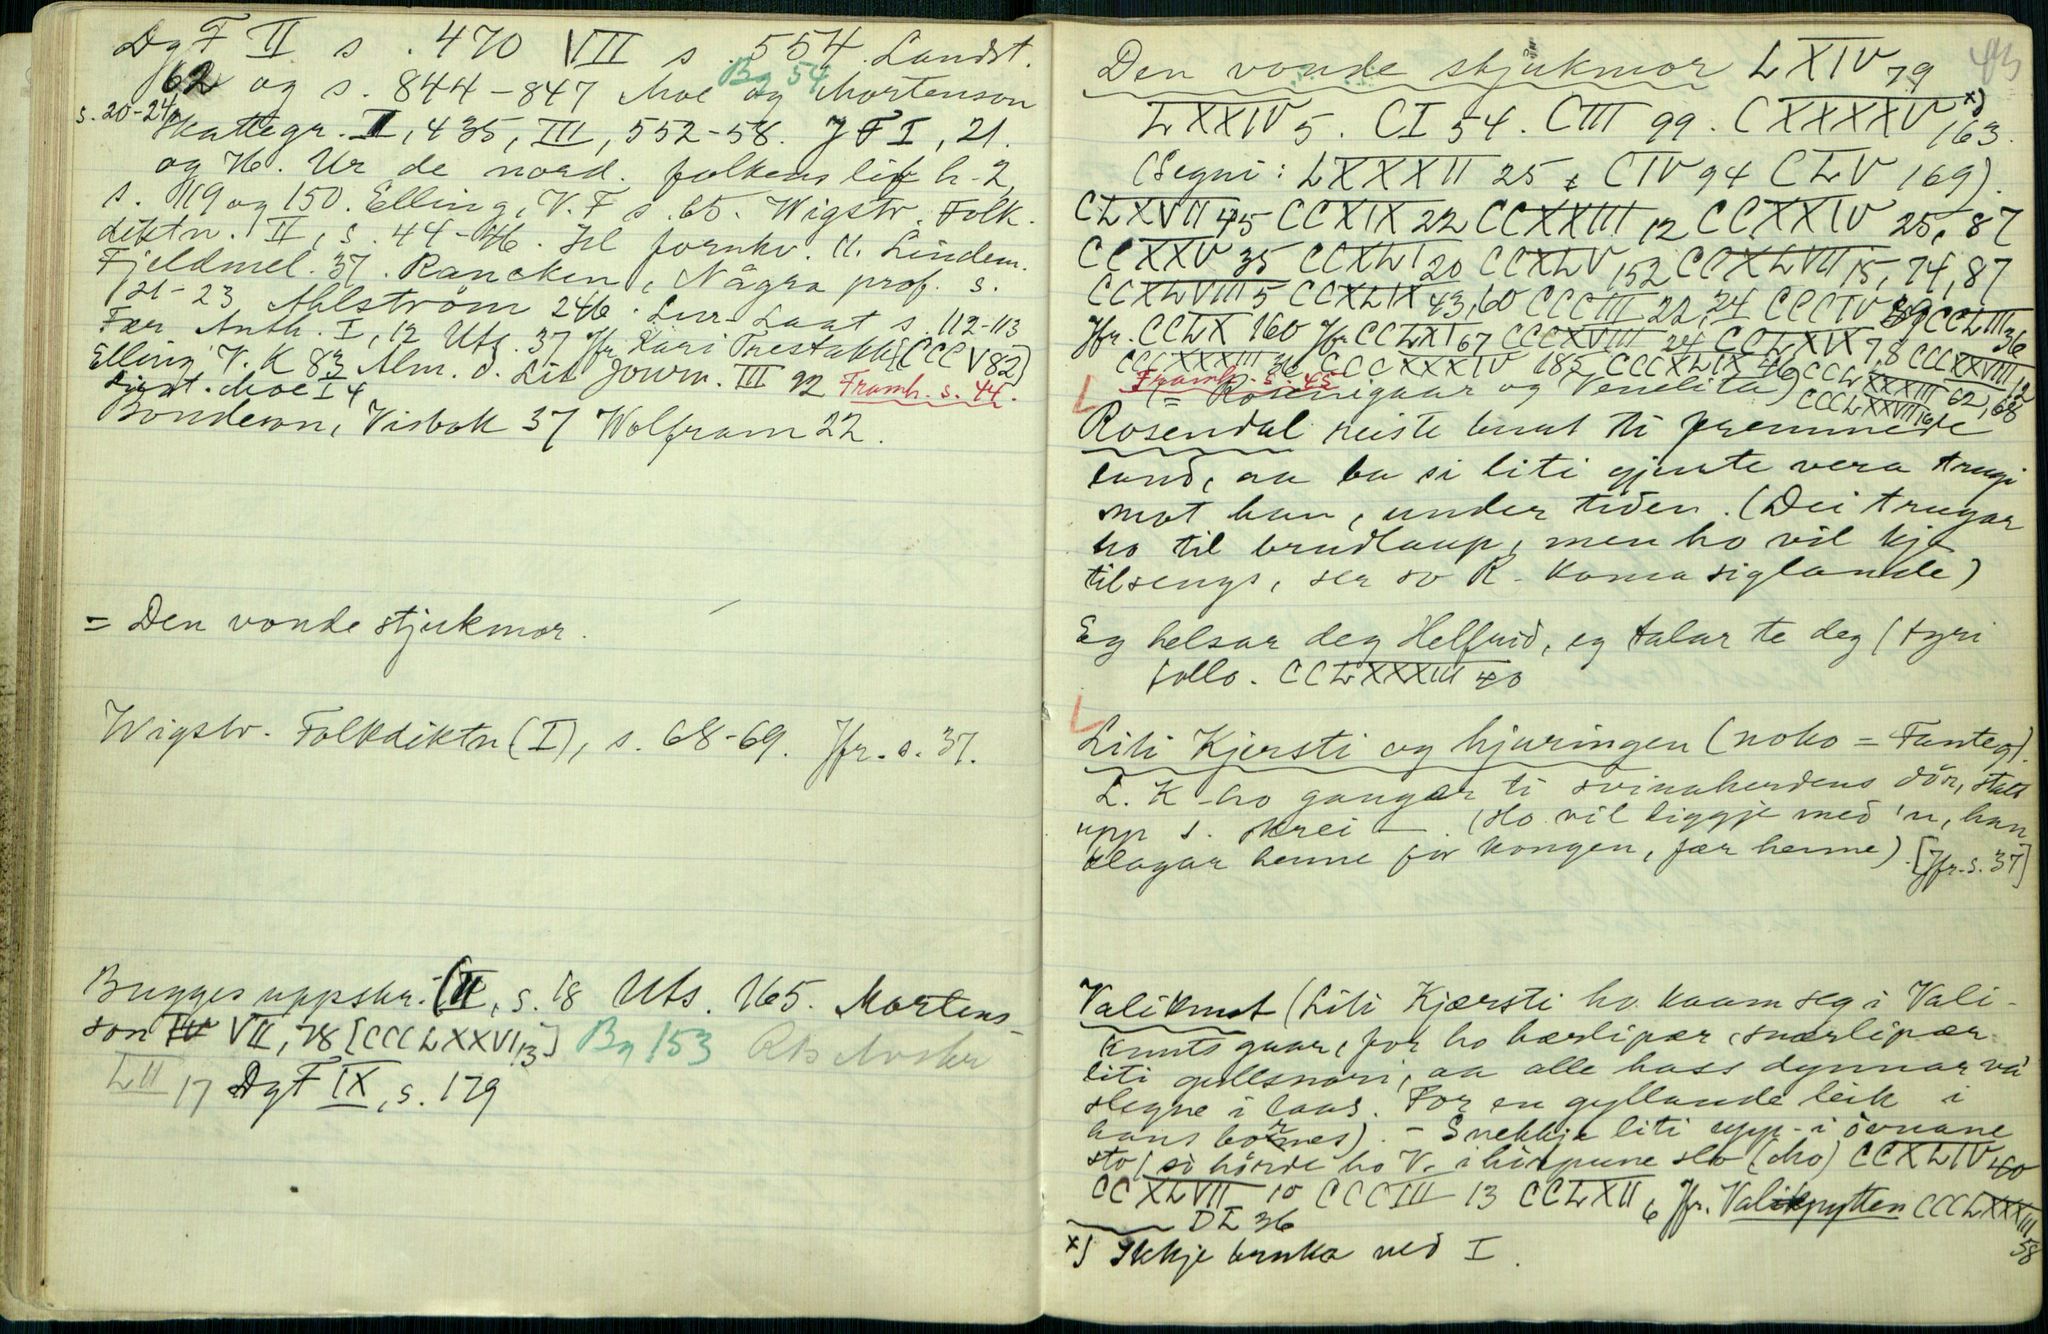 DgF II s. 470 VII s 554. Landst.
62 og s. 844-847 Moe og Mortenson
Bg 54
s. 20-24,
Skattegr. II, 435, III, 552-58. JFI, 21.
og 76. Ur de nord. folkens lif h. 2,
s. 119 og 150. Elling, V. F s. 65. Wigstr. Folk-
diktn. II, s. 44-46. Isl fornkv. 11. Lindem.
Fjeldmel. 37. Rancken, Några prof. s.
21-23 Ahlström 246. Lur-Laat s. 112-113
Fær Anth. I, 12 Uts. 37 Jfr. Kari Trestakk [CCCV 82]
Elling V. K 83 Alm. d. Lit Journ. III 92 Framh. s. 44.
Moe I 4
Bondeson, Visbok 37 Wolfram 22.
= Den vonde stjukmor.
Wigstr. Folkdiktn (I), s. 68-69. Jfr. s. 37.
Bugges uppskr. (II, s. 18 Uts. 165. Mortens-
son IV VII, 78 [CCCLXXVI 13] Bg 153
LII 17 DgF IX, s. 179
43
Den vonde stjukmor LXIV 79
LXXIV 5. CI 54. CIII 99. CXXXXV x) 163.
(Segni: LXXXII 25, CIV 94 CLV 169).
CLXVII 45 CCXIX 22 CCXXIII 12 CCXXIV 25, 87
CCXXV 35 CCXLI 20 CCXLV 152 CCXLVII 15, 74, 87
CCXLVIII 5 CCXLIX 43, 60 CCCIII 22, 24 CCCIV 89 CCLIII 36
Jfr. CCLX 160 Jfr CCLXI 67 CCCXVIII 24 CCLXIX 7, 8 CCCXXVIII 12
CCCXXXIII 36 CCCXXXIV 185 CCCXLIX 46 CCLXXXIII 62, 68
Framh. s. 45
(= Rosensgaar og Venelita) CCCLXXVII 16
Rosendal reiste burt ti fremmede
land, aa ba si liti gjente vera trugi
mot han, under tiden. (Dei trugar
ho til brudlaup, men ho vil kje
tilsengs, ser so R. koma siglande)
Eg helsar deg Helfrid, eg talar te deg (fyri
follo. CCLXXXIII 40
Liti Kjersti og hjuringen (noko = Fanteg).
L. K - ho gangar ti svinaherdens dör, statt
upp s. skrei -. (Ho vil liggje med 'n, han
klagar henne for kongen, fær henne). [Jfr. s. 37]
Valiknut (Liti Kjærsti ho kaam seg i Vali-
knuts gaar, for ho bærlipær, snærlipær
liti gullsnöri, aa alle hass dynnar va
slegne i laas. For en gyllande leik i
hans bornes). - Snekkja liti upp i övrane
sto / so hörde ho V. i hörpune slo (dho) CCXLIV 40
CCXLVII 10 CCCIII 13 CCLXII 6 Jfr. Valikjytten CCCLXXXIII 58
DI 36
x) Ikkje bruka ved I.